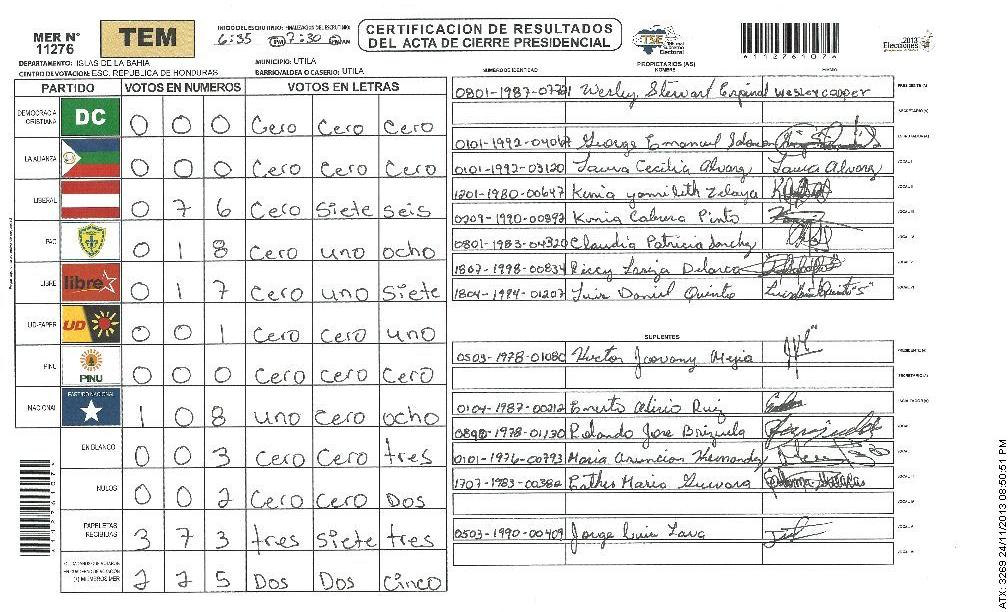 MER N°
11276
TEM
INICIO DEL ESCRUTINIO: FINALIZACION DEL ESCRUTINIO:
6:35 PM 7:30 PM AM
CERTIFICACION DE RESULTADOS
DEL ACTA DE CIERRE PRESIDENCIAL
TSE Tribunal Supremo Electoral
*11276107*
2013
Elecciones
DEPARTAMENTO: ISLAS DE LA BAHIA
MUNICIPIO: UTILA
CENTRO DE VOTACION: ESC. REPUBLICA DE HONDURAS
BARRIO/ALDEA O CASERIO: UTILA
PARTIDO VOTOS EN NUMEROS VOTOS EN LETRAS
DEMOCRACIA CRISTIANA DC 0 0 0 Cero Cero Cero
LA ALIANZA 0 0 0 Cero Cero Cero
LIBERAL 0 7 6 Cero Siete seis
PAC 0 1 8 Cero uno ocho
LIBRE libre 0 1 7 Cero uno Siete
UD-FAPER UD 0 0 1 Cero Cero uno
PINU PINU 0 0 0 Cero Cero Cero
NACIONAL PARTIDO NACIONAL 1 0 8 uno Cero ocho
EN BLANCO 0 0 3 Cero Cero tres
NULOS 0 0 2 Cero Cero Dos
PAPELETAS RECIBIDAS 3 7 3 tres siete tres
(+) MIEMBROS MER 2 2 5 Dos Dos Cinco
PROPIETARIOS (AS)
NUMERO DE IDENTIDAD NOMBRE FIRMA
Wesley Stewart wesley cooper PRESIDENTE (A)
SECRETARIO (A)
0101-1992-04067 George Emanuel ESCRUTADOR (A)
0101-1992-03120 Laura Cecilia Alvarez Laura Alvarez VOCAL I
1201-1980-00647 Kenia yamileth Zelaya VOCAL II
0209-1990-00897 Kenia Cabrera Pinto VOCAL III
0801-1983-04320 Claudia Patricia Sanchez VOCAL IV
1807-1998-00834 VOCAL V
1804-1994-01207 Luis Daniel Quinto VOCAL VI
SUPLENTES
0503-1978-01080 Hector Jeovany Mejia PRESIDENTE (A)
SECRETARIO (A)
0104-1987-00212 Ernesto Alirio Ruiz ESCRUTADOR (A)
0890-1978-01130 Rolando Jose Brizuela VOCAL I
0101-1976-00793 Maria Asuncion Hernandez VOCAL II
1707-1983-00382 Esther Maria Guevara VOCAL III
VOCAL IV
0503-1990-00409 Jorge Luis Lara VOCAL V
ATX: 3269 24/11/2013 08:50:51 PM